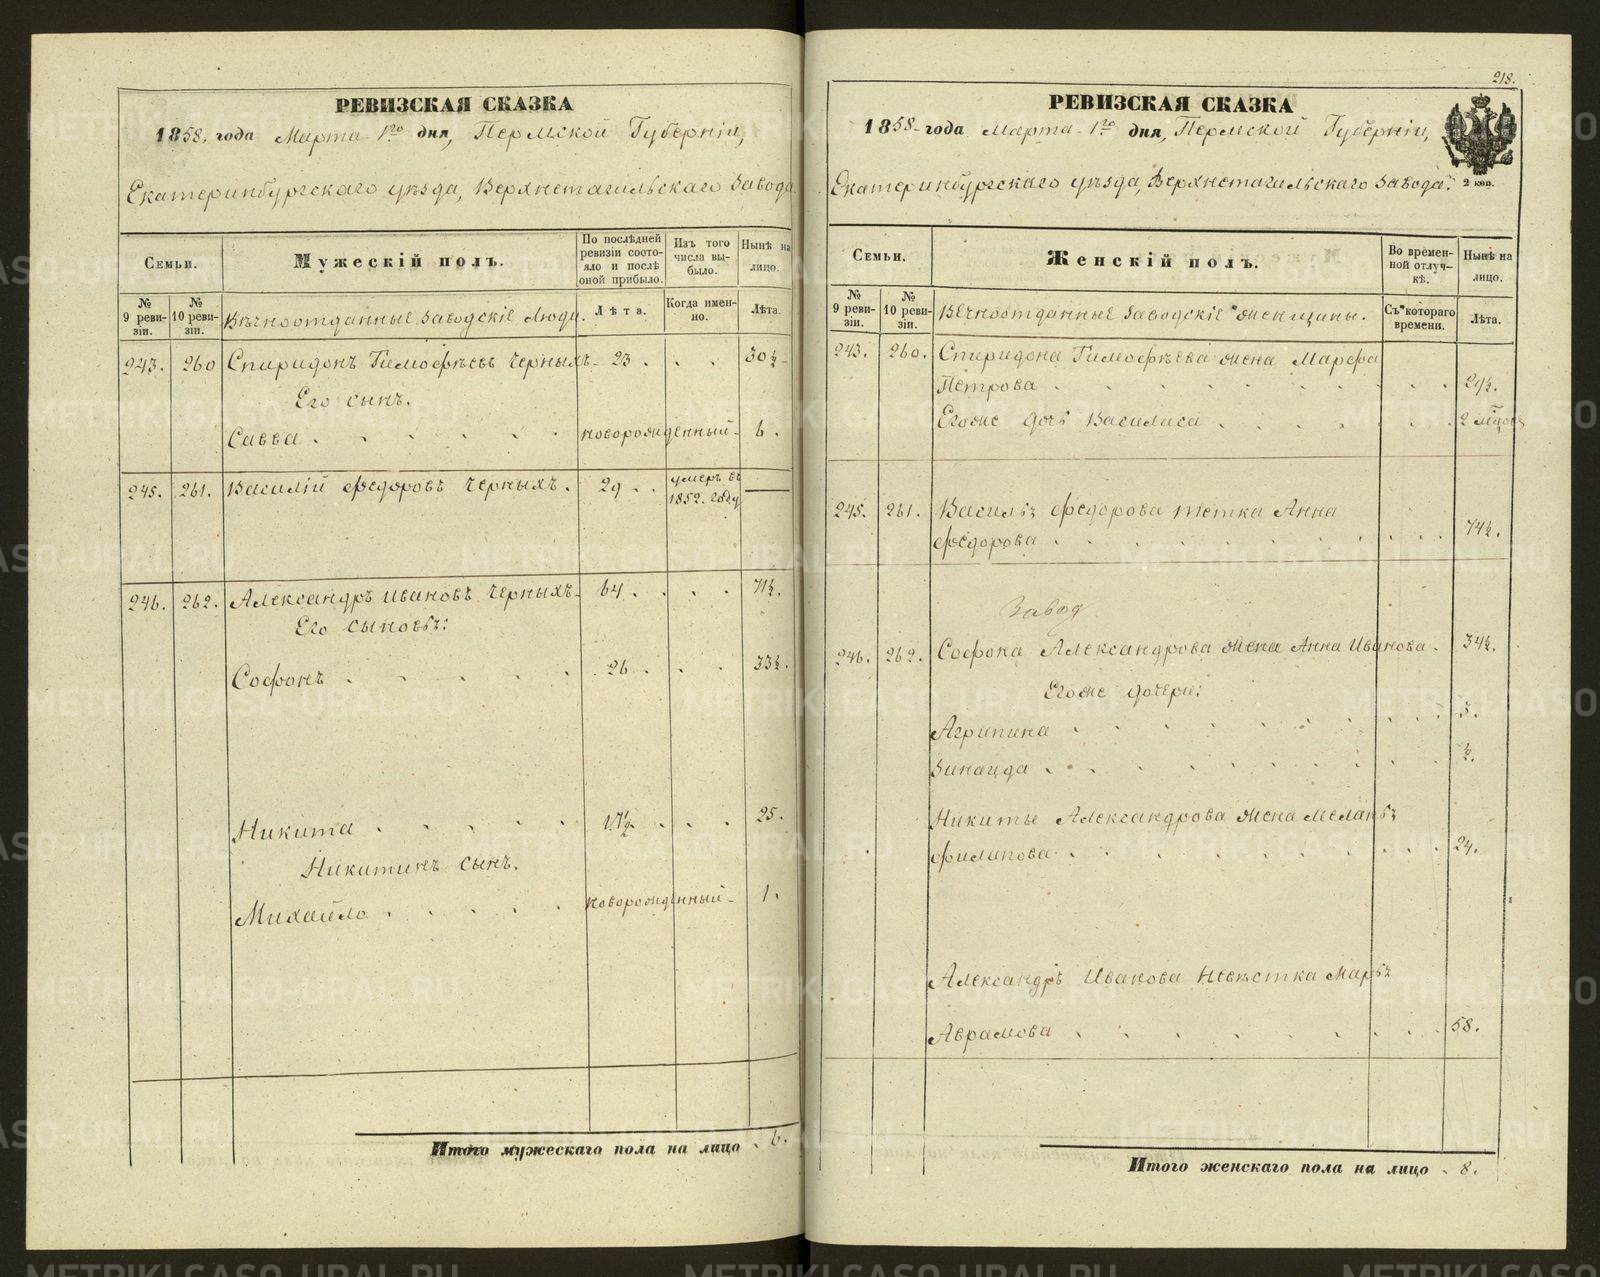 РЕВИЗСКАЯ СКАЗКА
1858. года Марта 1го дня, Пермской Губерніи,
Екатеринбургскаго уѣзда, Верхнетагильскаго Завода
Семьи.
Мужескій полъ.
По послѣдней ревизіи состояло и послѣ оной прибыло.
Изъ того числа выбыло.
Нынѣ на лицо.
№ 9 ревизіи.
№ 10 ревизіи.
Вѣчноотданные Заводскіе Люди.
Лѣта.
Когда именно.
Лѣта.
243. 260 Спиридонъ Тимофѣевъ Черныхъ - 23 . . . 30½
Его сынъ.
Савва . . . . . новорожденный - 6.
245. 261. Василій Федоровъ Черныхъ. 29 . . умеръ въ 1852. году —
246. 262. Александръ Ивановъ Черныхъ - 64 . . . 71½.
Его сыновья:
Софонъ . . . . . 26 . . . 33½.
Никита . . . . . 17½ . . . 25.
Никитинъ сынъ.
Михайло . . . . . новорожденный - 1.
Итого мужескаго пола на лицо . 6.
218.
РЕВИЗСКАЯ СКАЗКА
1858 - года Марта 1го дня, Пермской Губерніи,
Екатеринбургскаго уѣзда, Верхнетагильскаго Завода.
2 коп.
Семьи.
Женскій полъ.
Во временной отлучкѣ.
Нынѣ на лицо.
№ 9 ревизіи.
№ 10 ревизіи.
Вѣчноотданные Заводскіе женщины.
Съ котораго времени.
Лѣта.
243. 260. Спиридона Тимофѣева жена Марфа
Петрова . . . . . 29½.
Егоже дочь Василиса . . . . . 2 мѣсец
245. 261. Василья Федорова тетка Анна
Федорова . . . . . 74½.
Завод
246. 262. Софона Александрова жена Анна Иванова . 34½.
Егоже дочери:
Агрипина . . . . . 3.
Зинаида . . . . . ½.
Никиты Александрова жена Меланья
Филипова . . . . . 24.
Александръ Иванова Невѣстка Марья
Аврамова . . . . . 58.
Итого женскаго пола на лицо . 8.
METRIKI.GASO-URAL.RU